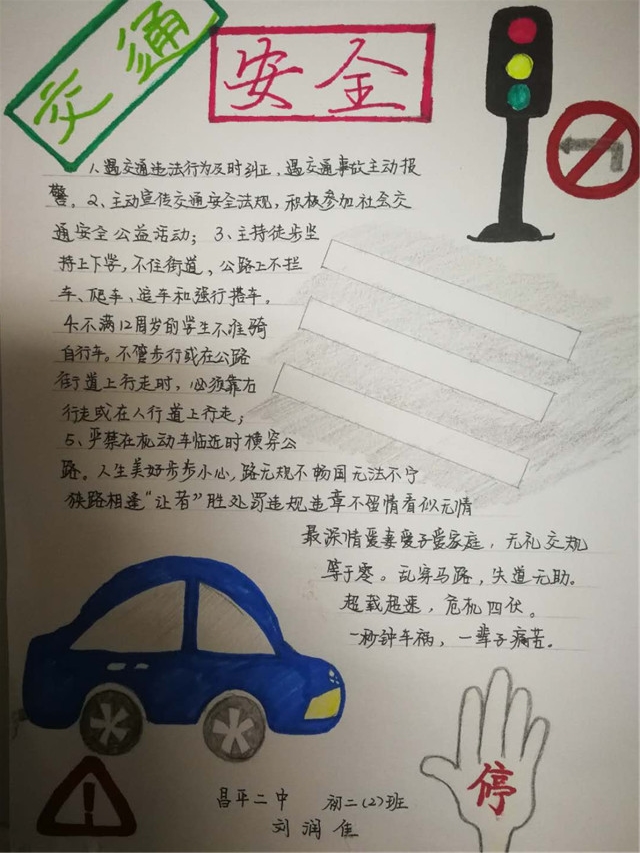 交通
安全
1、遇交通违法行为及时纠正，遇交通事故主动报
警。2、主动宣传交通安全法规，积极参加社会交
通安全公益活动；3、主持徒步坐
持上下学，不住街道、公路上不拦
车、爬车、追车和强行搭车。
4、不满12周岁的学生不准骑
自行车。不管步行或在公路
街道上行走时，必须靠右
行走或在人行道上行走；
5、严禁在机动车临近时横穿公
路。人生美好步步小心，路无规不畅国无法不宁
狭路相逢“让者”胜处罚违规违章不留情看似无情
最深情爱妻爱子爱家庭，无礼交规
等于零。乱穿马路，失道无助。
超载超速，危机四伏。
一秒钟车祸，一辈子痛苦。
停
昌平二中 初二(2)班
刘润佳